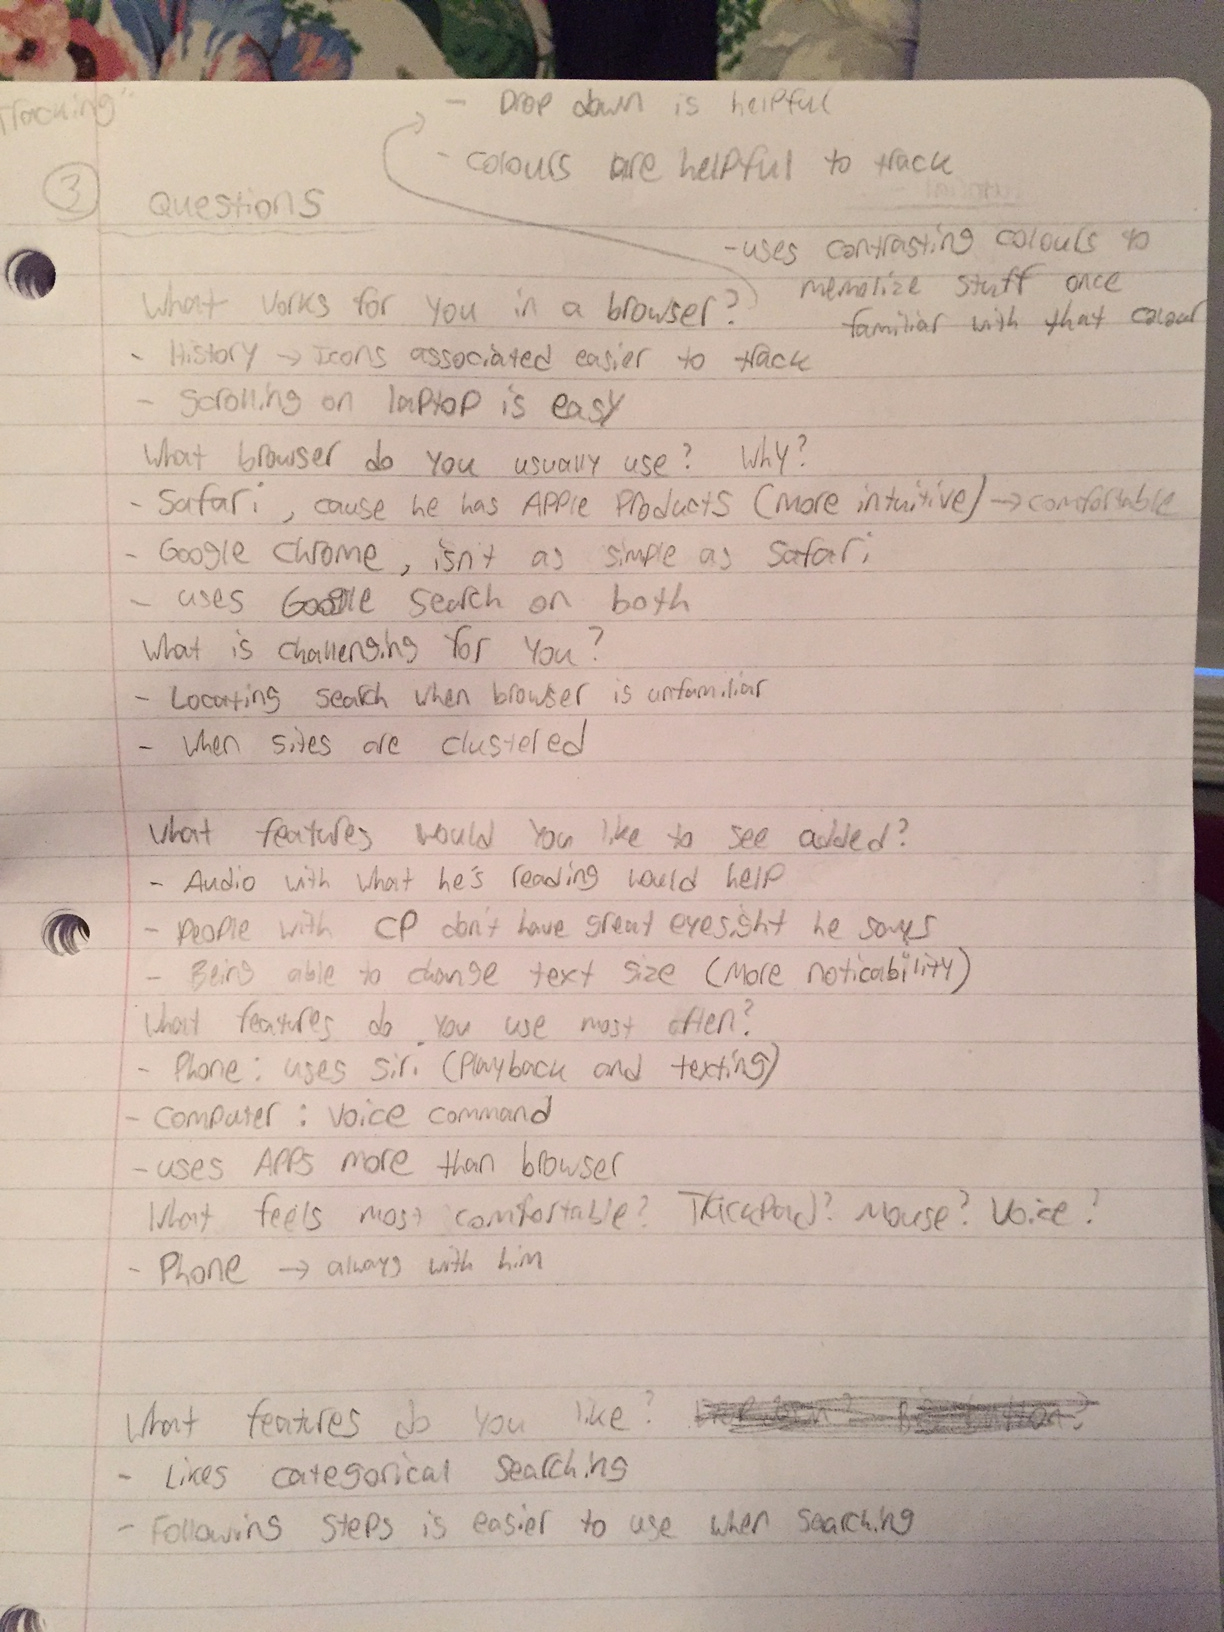 Tracking"
- Drop down is helpful
- colours are helpful to track
③ Questions
- uses contrasting colours to
memorize stuff once
familiar with that colour
What works for you in a browser?
- History → Icons associated easier to track
- Scrolling on laptop is easy
What browser do you usually use? Why?
- Safari, cause he has Apple Products (more intuitive) → comfortable
- Google Chrome, isn't as simple as Safari
- uses Google search on both
What is challenging for you?
- Locating search when browser is unfamiliar
- When sites are clustered
What features would you like to see added?
- Audio with what he's reading would help
- People with CP don't have great eyesight he says
- Being able to change text size (More noticability)
What features do you use most often?
- Phone: uses siri (Playback and texting)
- Computer: Voice command
- uses APPs more than browser
What feels most comfortable? TrackPad? Mouse? Voice?
- Phone → always with him
What features do you like?
- Likes categorical searching
- Following steps is easier to use when searching